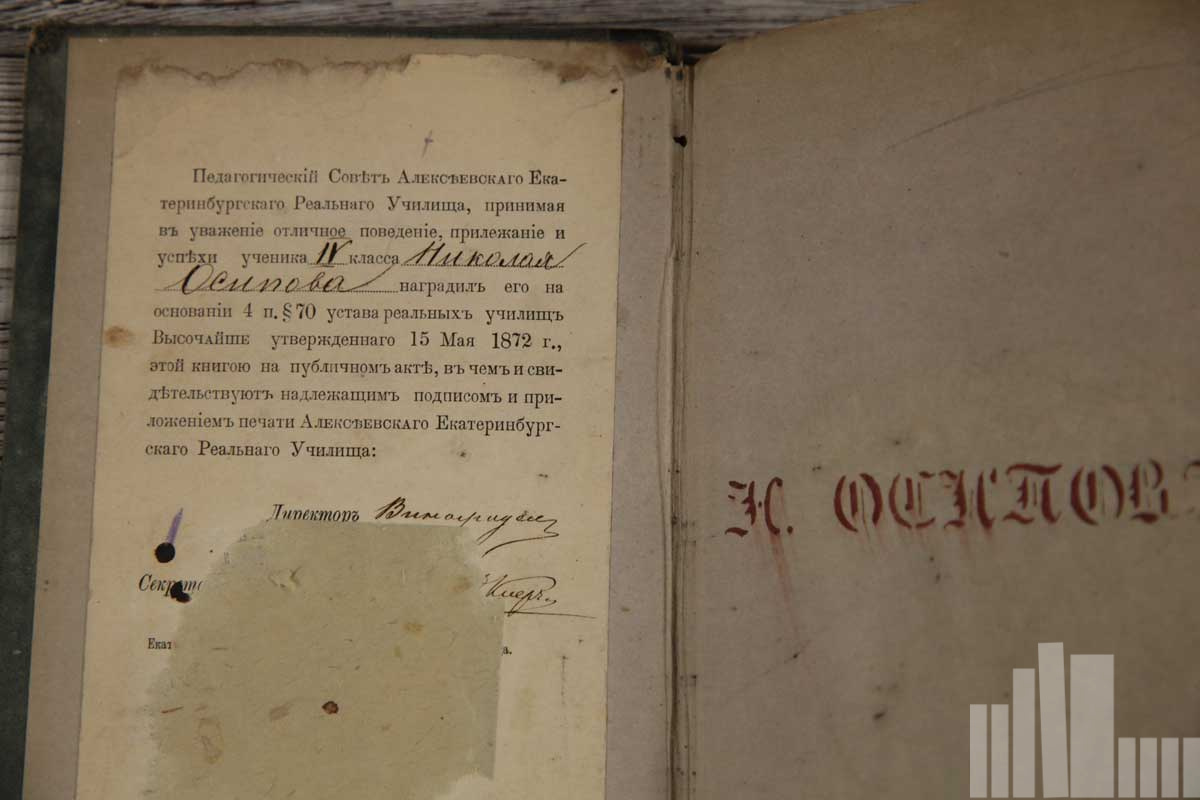 Педагогическій Совѣтъ Алексѣевскаго Ека-
теринбургскаго Реальнаго Училища, принимая
въ уваженіе отличное поведеніе, прилежаніе и
успѣхи ученика IV класса Николая
Осипова наградилъ его на
основаніи 4 п. § 70 устава реальныхъ училищъ
Высочайше утвержденнаго 15 Мая 1872 г.,
этой книгою на публичномъ актѣ, въ чемъ и сви-
дѣтельствуютъ надлежащимъ подписомъ и при-
ложеніемъ печати Алексѣевскаго Екатеринбург-
скаго Реальнаго Училища:
Директоръ
Секрета
Екат
Н. ОСИПОВ